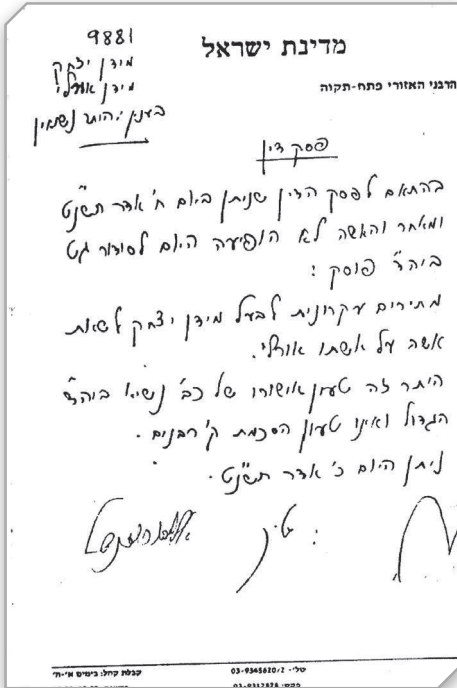 9881
מידן יצחק
מידן אורלי
בענין: היתר נשואין
מדינת ישראל
הרבני האזורי פתח-תקוה
פסק דין
בהתאם לפסק הדין שניתן ביום ח' אדר תשנ"ט
ומאחר והאשה לא הופיעה היום לסדור גט
ביה"ד פוסק:
מתירים עקרונית לבעל מידן יצחק לשאת
אשה על אשתו אורלי.
היתר זה טעון אישורו של כב' נשיא ביה"ד
הגדול ואינו טעון הסכמת ק' רבנים.
ניתן היום כ' אדר תשנ"ט.
קבלת קהל: בימים א'-ה'
טל'- 03-9345820/2
פקס- 03-9312878